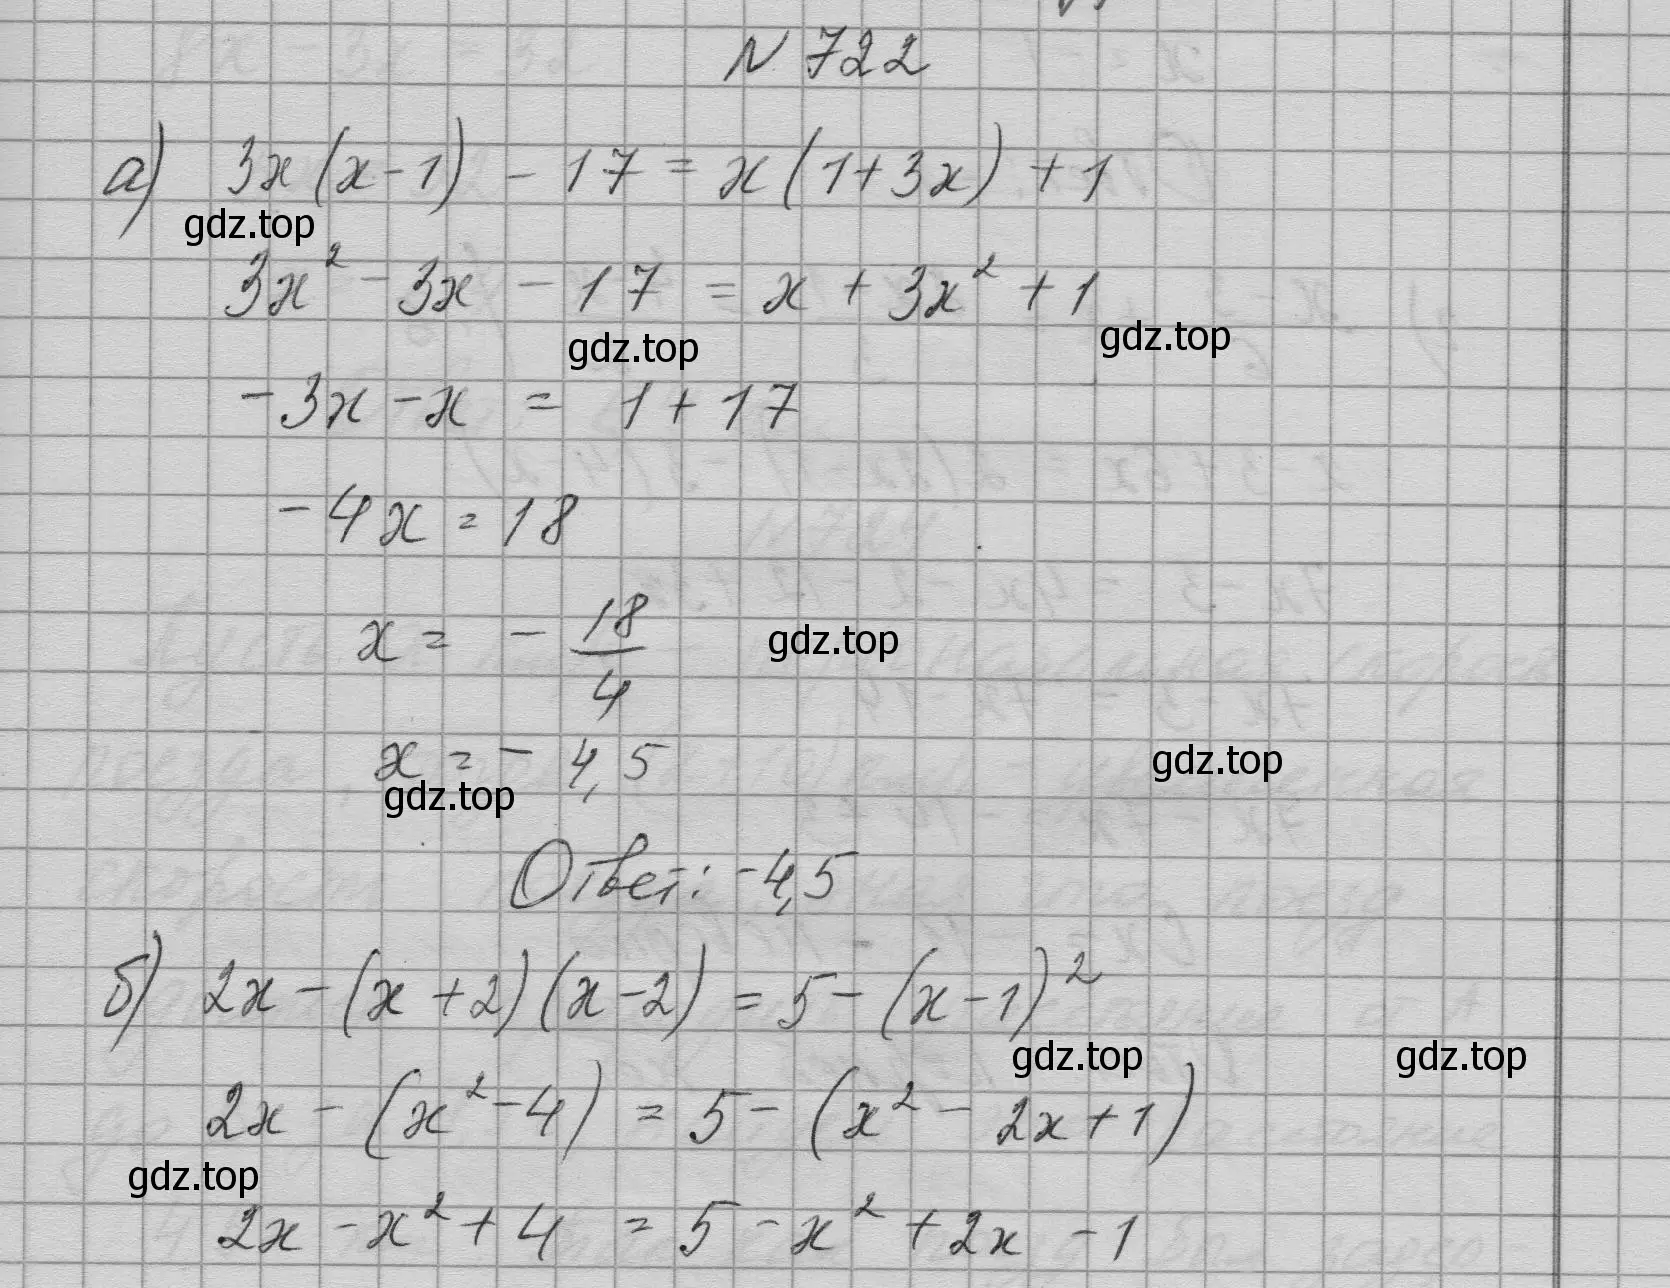 N 722
а) 3x(x-1) - 17 = x(1+3x) + 1
gdz.top
3x² - 3x - 17 = x + 3x² + 1
gdz.top gdz.top
-3x - x = 1 + 17
-4x = 18
x = - 18/4
gdz.top
x = - 4,5
gdz.top gdz.top
Ответ: -4,5
б) 2x - (x+2)(x-2) = 5 - (x-1)²
gdz.top gdz.top
2x - (x² - 4) = 5 - (x² - 2x + 1)
gdz.top
2x - x² + 4 = 5 - x² + 2x - 1